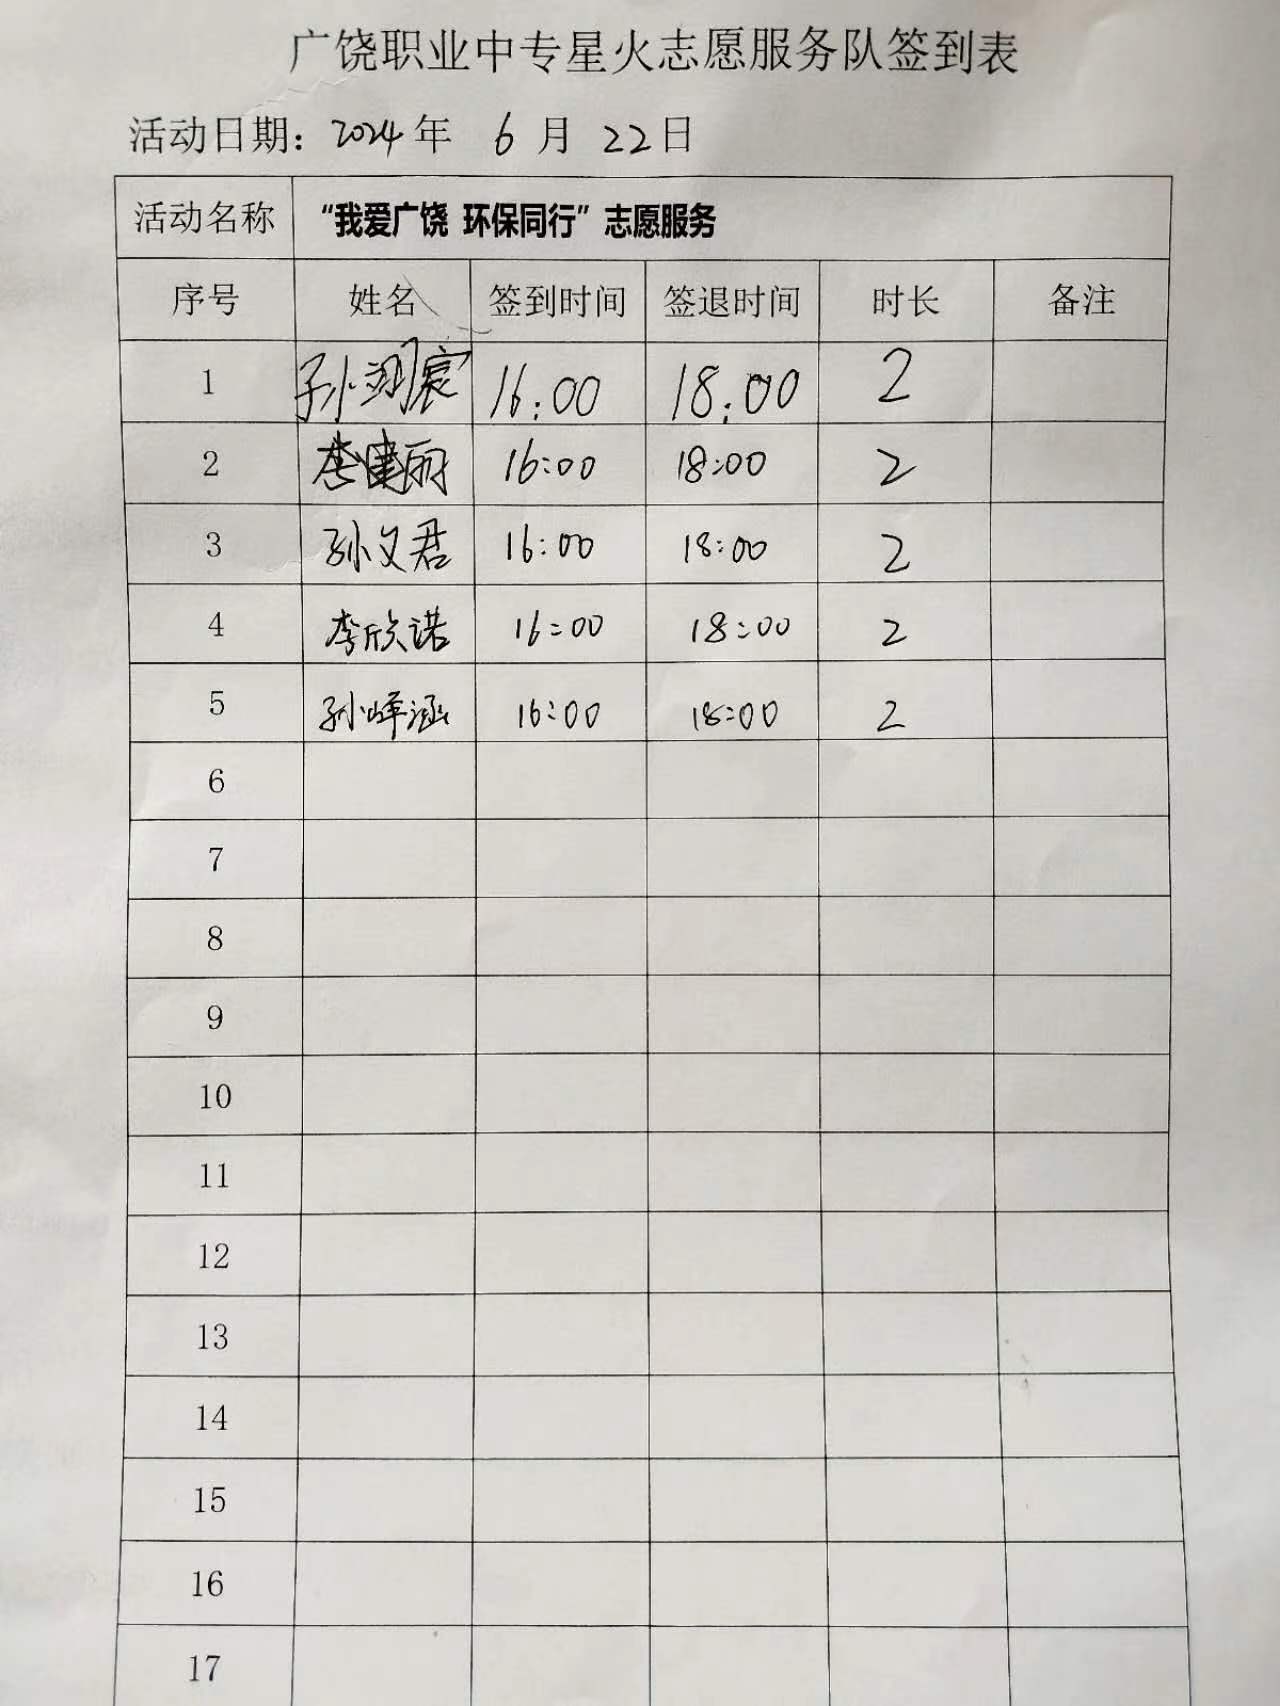 广饶职业中专星火志愿服务队签到表
活动日期：2024年 6 月 22日
活动名称 “我爱广饶 环保同行”志愿服务
序号 姓名 签到时间 签退时间 时长 备注
1 孙 16:00 18:00 2
2 李建丽 16:00 18:00 2
3 孙文君 16:00 18:00 2
4 李欣诺 16:00 18:00 2
5 孙峄涵 16:00 18:00 2
6
7
8
9
10
11
12
13
14
15
16
17